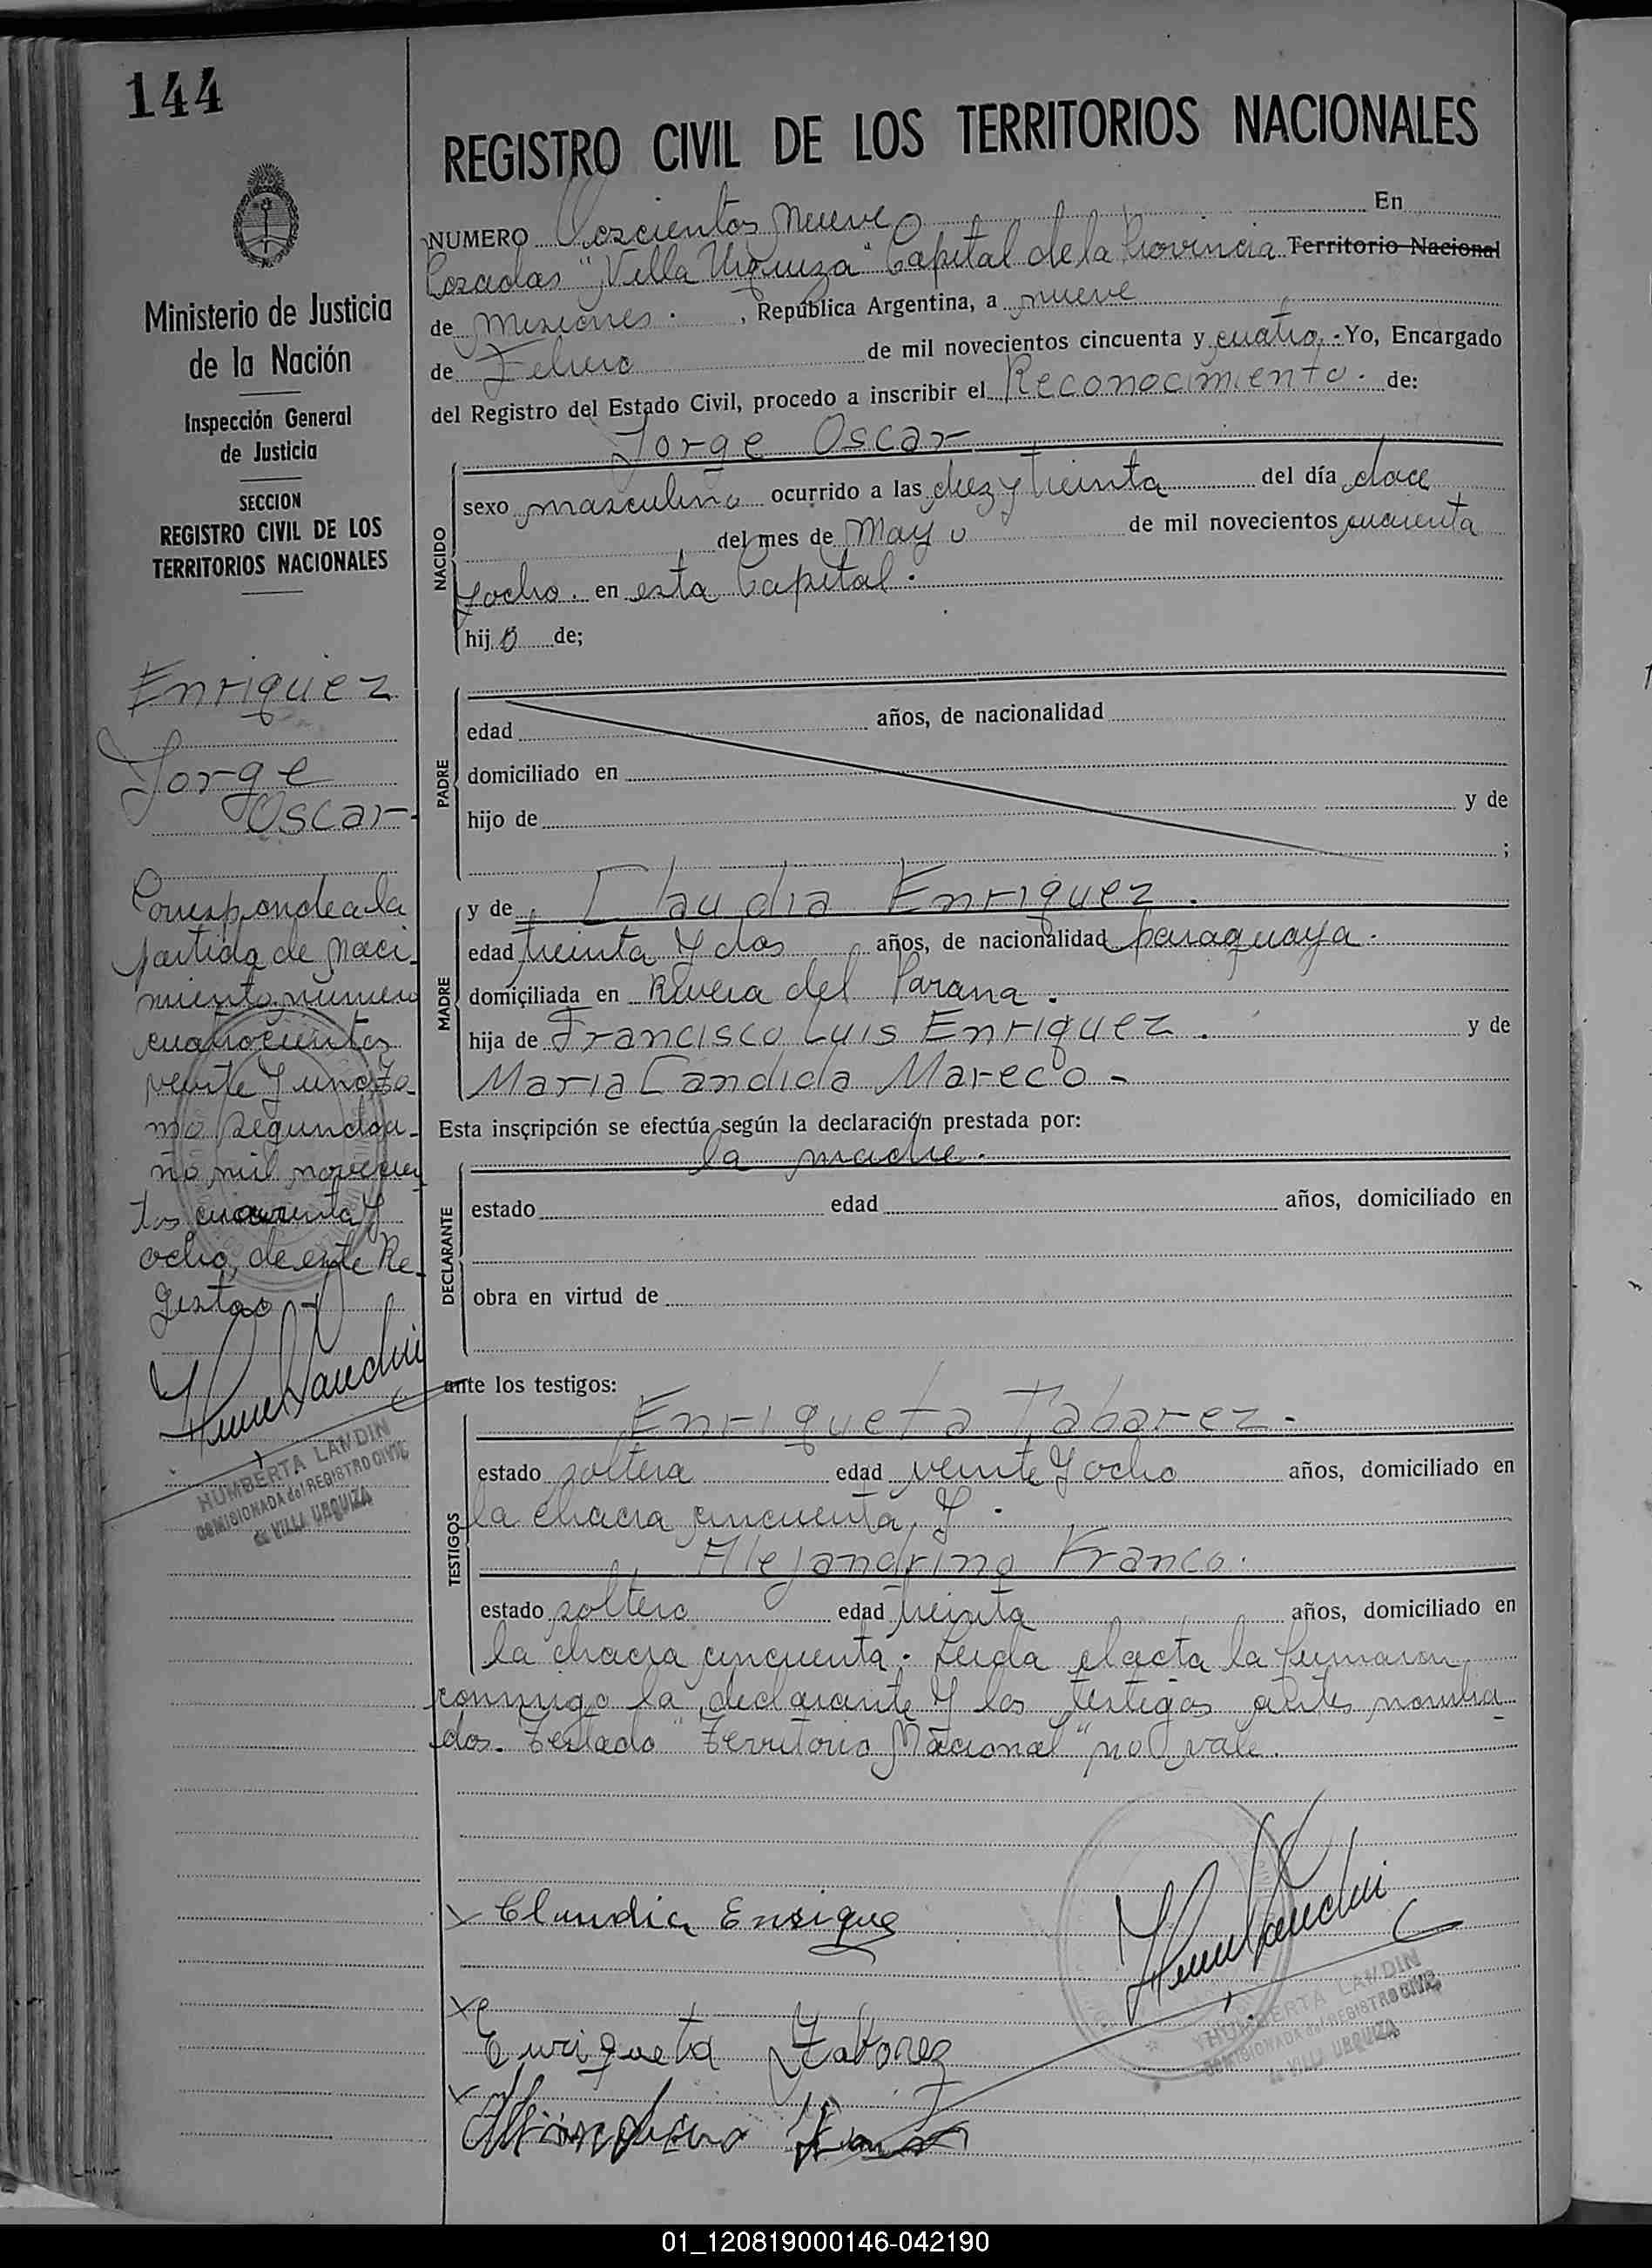 144
Ministerio de Justicia
de la Nación
Inspección General
de Justicia
SECCION
REGISTRO CIVIL DE LOS
TERRITORIOS NACIONALES
Enriquez
Jorge
Oscar-
Corresponde a la
partida de naci-
miento número
cuatrocientos
veinte y uno, To-
mo segundo a-
ño mil novecien
tos cuarenta y
ocho, de este Re-
gistro -
HUMBERTA LANDIN
COMISIONADA del REGISTRO CIVIL
de VILLA URQUIZA
REGISTRO CIVIL DE LOS TERRITORIOS NACIONALES
NUMERO Doscientos nueve En
Posadas "Villa Urquiza" Capital de la Provincia Territorio Nacional
de Misiones. , República Argentina, a nueve
de Febrero de mil novecientos cincuenta y cuatro.- Yo, Encargado
del Registro del Estado Civil, procedo a inscribir el Reconocimiento. de:
Jorge Oscar
NACIDO
sexo masculino ocurrido a las diez y treinta del día doce
del mes de Mayo de mil novecientos cuarenta
y ocho. en esta Capital.
hijo de;
PADRE
edad años, de nacionalidad
domiciliado en
hijo de y de
;
MADRE
y de Claudia Enriquez.
edad treinta y dos años, de nacionalidad paraguaya.
domiciliada en Rivera del Parana.
hija de Francisco Luis Enriquez. y de
Maria Candida Mareco -
Esta inscripción se efectúa según la declaración prestada por:
la madre.
DECLARANTE
estado edad años, domiciliado en
obra en virtud de
ante los testigos:
TESTIGOS
Enriqueta Tabarez-
estado soltera edad veinte y ocho años, domiciliado en
la chacra cincuenta y .
Alejandrino Franco.
estado soltero edad treinta años, domiciliado en
la chacra cincuenta. Leida el acta la firmaron
conmigo la declarante y los testigos antes nombra-
dos. Testado "Territorio Nacional" no vale.
x Claudia Enrique
x
Enriqueta Tabarez
HUMBERTA LANDIN
COMISIONADA del REGISTRO CIVIL
de VILLA URQUIZA
01_120819000146-042190